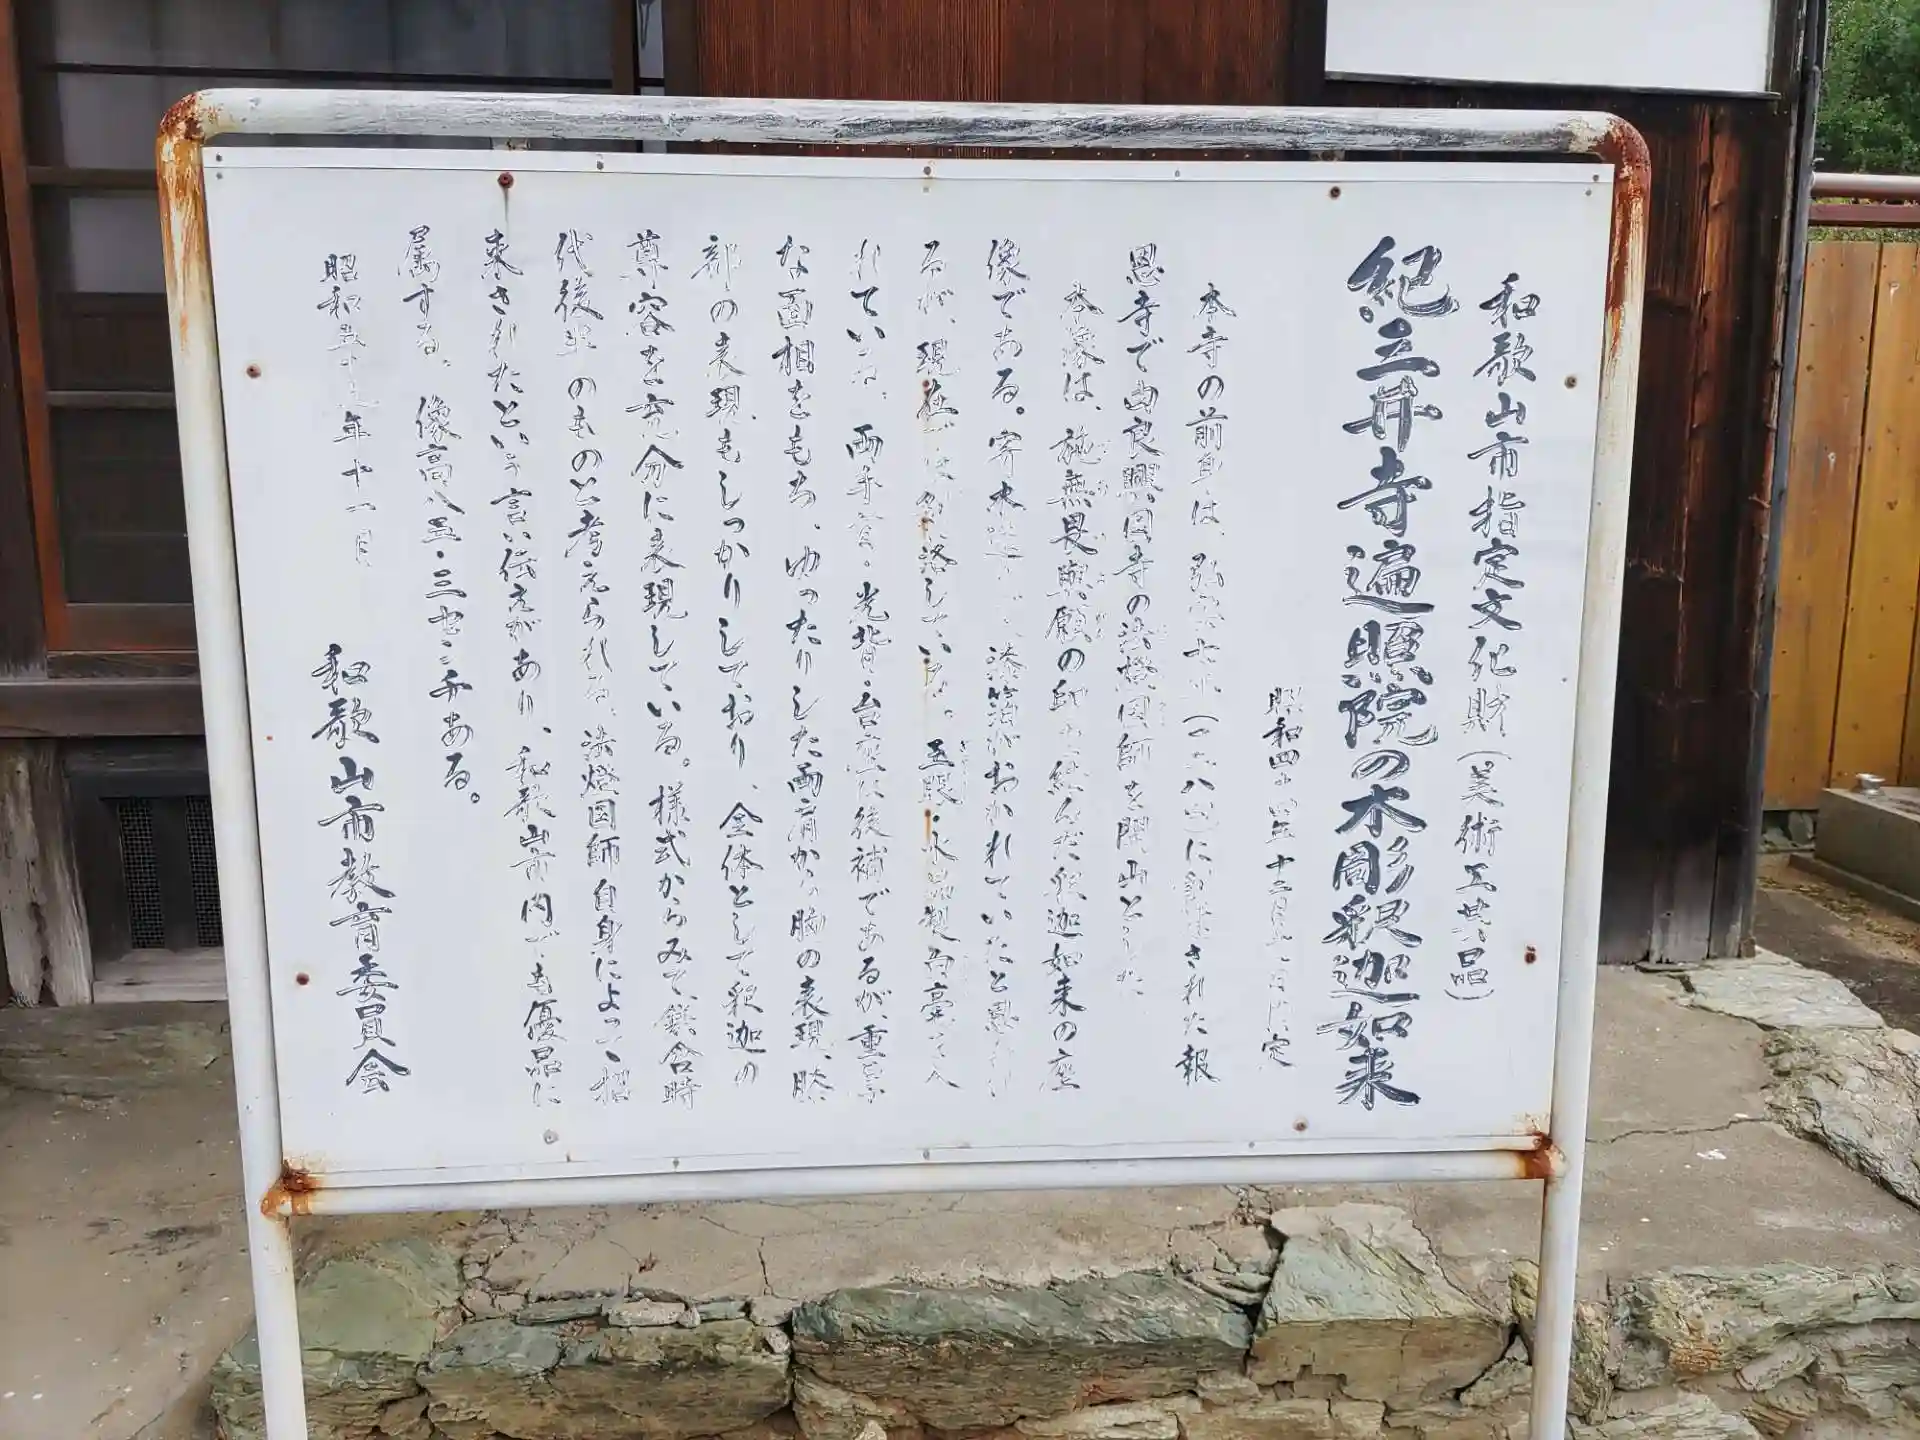 和歌山市指定文化財(美術工芸品)
紀三井寺遍照院の木彫釈迦如来
昭和四十四年十二月 指定
本寺の前身は、弘安七年(一二八四)に された報
恩寺で由良興国寺の法燈国師を開山とした
本像は、施無畏與願の印を結んだ釈迦如来の座
像である。寄木造りで漆箔がおかれていたと思われ
るが、現在 剥落している。玉眼・水晶製白毫を入
れている。両手首・光背・台座は後補であるが、重厚
な面相をもち、ゆったりした両肩から胸の表現、膝
部の表現もしっかりしており、全体として釈迦の
尊容を充分に表現している。様式からみて、鎌倉時
代後半のものと考えられる。法燈国師自身によって招
来されたという言い伝えがあり、和歌山市内でも優品に
属する。像高八五・三センチある。
昭和五十 年十一月
和歌山市教育委員会